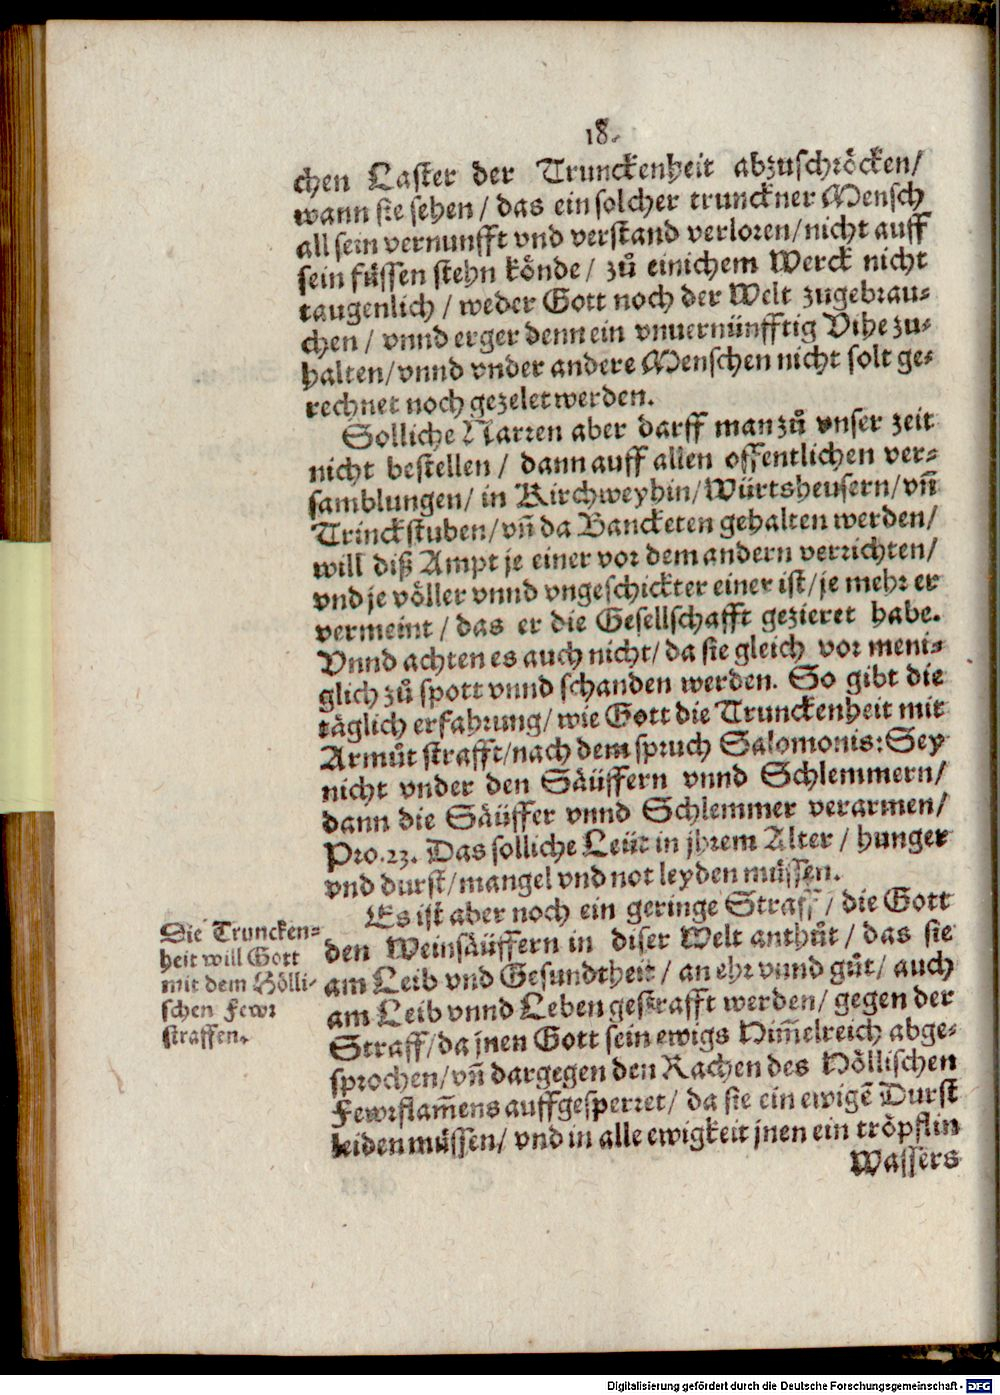 18.
chen Laster der Trunckenheit abzuschröcken/
wann sie sehen / das ein solcher trunckner Mensch
all sein vernunfft vnd verstand verloren/ nicht auff
sein füssen stehn könde / zů einichem Werck nicht
taugenlich / weder Gott noch der Welt zugebrau-
chen / vnnd erger denn ein vnuernünfftig Vihe zu-
halten/ vnnd vnder andere Menschen nicht solt ge-
rechnet noch gezelet werden.
Solliche Narren aber darff man zů vnser zeit
nicht bestellen / dann auff allen offentlichen ver-
samblungen/ in Kirchweyhin/ Würtsheusern/ vñ
Trinckstuben/ vñ da Bancketen gehalten werden/
will diß Ampt je einer vor dem andern verrichten/
vnd je völler vnnd vngeschickter einer ist/ je mehr er
vermeint / das er die Gesellschafft gezieret habe.
Vnnd achten es auch nicht/ da sie gleich vor meni-
glich zů spott vnnd schanden werden. So gibt die
täglich erfahrung/ wie Gott die Trunckenheit mit
Armůt strafft/ nach dem spruch Salomonis: Sey
nicht vnder den Säüffern vnnd Schlemmern/
dann die Säüffer vnnd Schlemmer verarmen/
Pro. 23. Das solliche Leüt in jhrem Alter / hunger
vnd durst/ mangel vnd not leyden müssen.
Es ist aber noch ein geringe Straff / die Gott
den Weinsäüffern in diser Welt anthůt / das sie
am Leib vnd Gesundtheit / an ehr vnnd gůt/ auch
am Leib vnnd Leben gestrafft werden/ gegen der
Straff/ da jnen Gott sein ewigs Him̃elreich abge-
sprochen/ vñ dargegen den Rachen des Höllischen
Fewrflam̃ens auffgesperret/ da sie ein ewigẽ Durst
leiden müssen/ vnd in alle ewigkeit jnen ein tröpflin
Wassers
Die Truncken-
heit will Gott
mit dem Hölli-
schen Fewr
straffen.
Digitalisierung gefördert durch die Deutsche Forschungsgemeinschaft - DFG